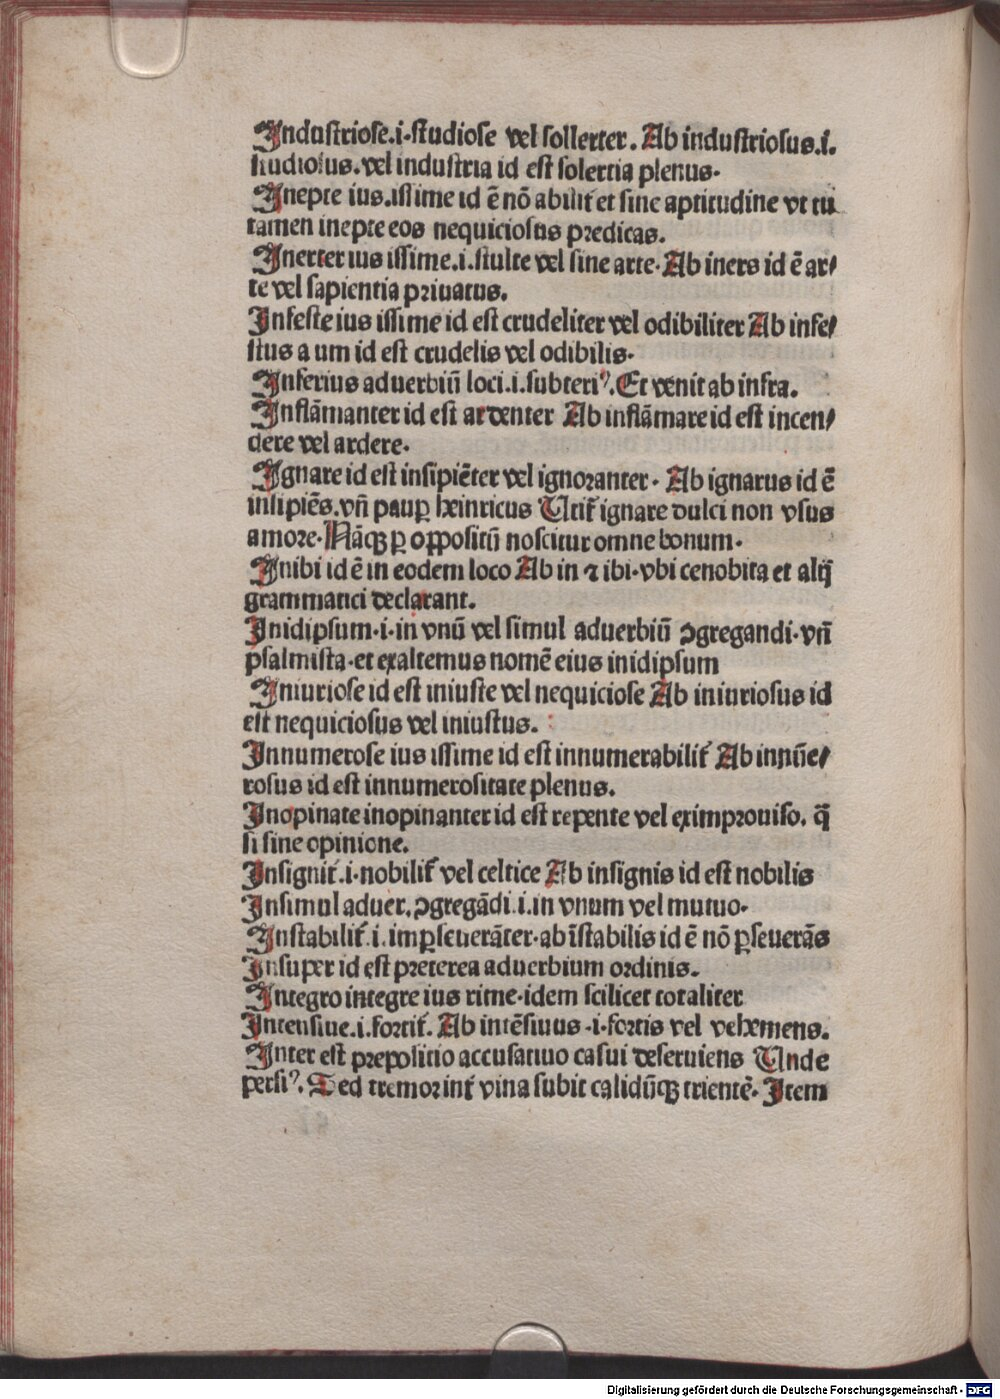 Industriose.i.studiose vel sollerter. Ab industriosus.i.
studiosus.vel industria id est solertia plenus.
Inepte ius.issime id ē nō abilit᷑ et sine aptitudine vt tu
tamen inepte eos nequiciosus predicas.
Inerter ius issime.i.stulte vel sine arte. Ab iners id ē ar⸗
te vel sapientia priuatus.
Infeste ius issime id est crudeliter vel odibiliter Ab infe⸗
stus a um id est crudelis vel odibilis.
Inferius aduerbiū loci.i.subteriꝰ. Et venit ab infra.
Inflāmanter id est ardenter Ab inflāmare id est incen⸗
dere vel ardere.
Ignare id est insipiēter vel ignoranter. Ab ignarus id ē
insipiēs.vn̄ paup̲ heinricus Utit᷑ ignare dulci non vsus
amore. Nāqꝫ ꝑ oppositū noscitur omne bonum.
Inibi id ē in eodem loco Ab in ꝛ ibi.vbi cenobita et alij
grammatici declarant.
Inidipsum.i.in vnū vel simul aduerbiū ꝯgregandi.vn̄
psalmista.et exaltemus nomē eius inidipsum
Iniuriose id est iniuste vel nequiciose Ab iniuriosus id
est nequiciosus vel iniustus.
Innumerose ius issime id est innumerabilit᷑ Ab innūe⸗
rosus id est innumerositate plenus.
Inopinate inopinanter id est repente vel eximprouiso. q̄
si sine opinione.
Insignit᷑.i.nobilit᷑ vel celtice Ab insignis id est nobilis
Insimul aduer. ꝯgregādi.i.in vnum vel mutuo.
Instabilit᷑.i.imꝑseuerāter.ab īstabilis id ē nō ꝑseuerās
Insuper id est preterea aduerbium ordinis.
Integro integre ius rime.idem scilicet totaliter
Intensiue.i.fortit᷑. Ab intēsiuus.i.fortis vel vehemens.
Inter est prepositio accusatiuo casui deseruiens Unde
persiꝰ. Sed tremor int᷑ vina subit calidūqꝫ trientē. Item
Digitalisierung gefördert durch die Deutsche Forschungsgemeinschaft - DFG